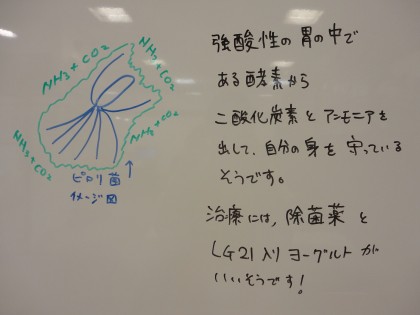 NH3+CO2
NH3+CO2
NH3+CO2
NH3+CO2
ピロリ菌
イメージ図
強酸性の胃の中で
ある酵素から
二酸化炭素とアンモニアを
出して、自分の身を守っている
そうです。
治療には、除菌薬と
LG21入りヨーグルトが
いいそうです!